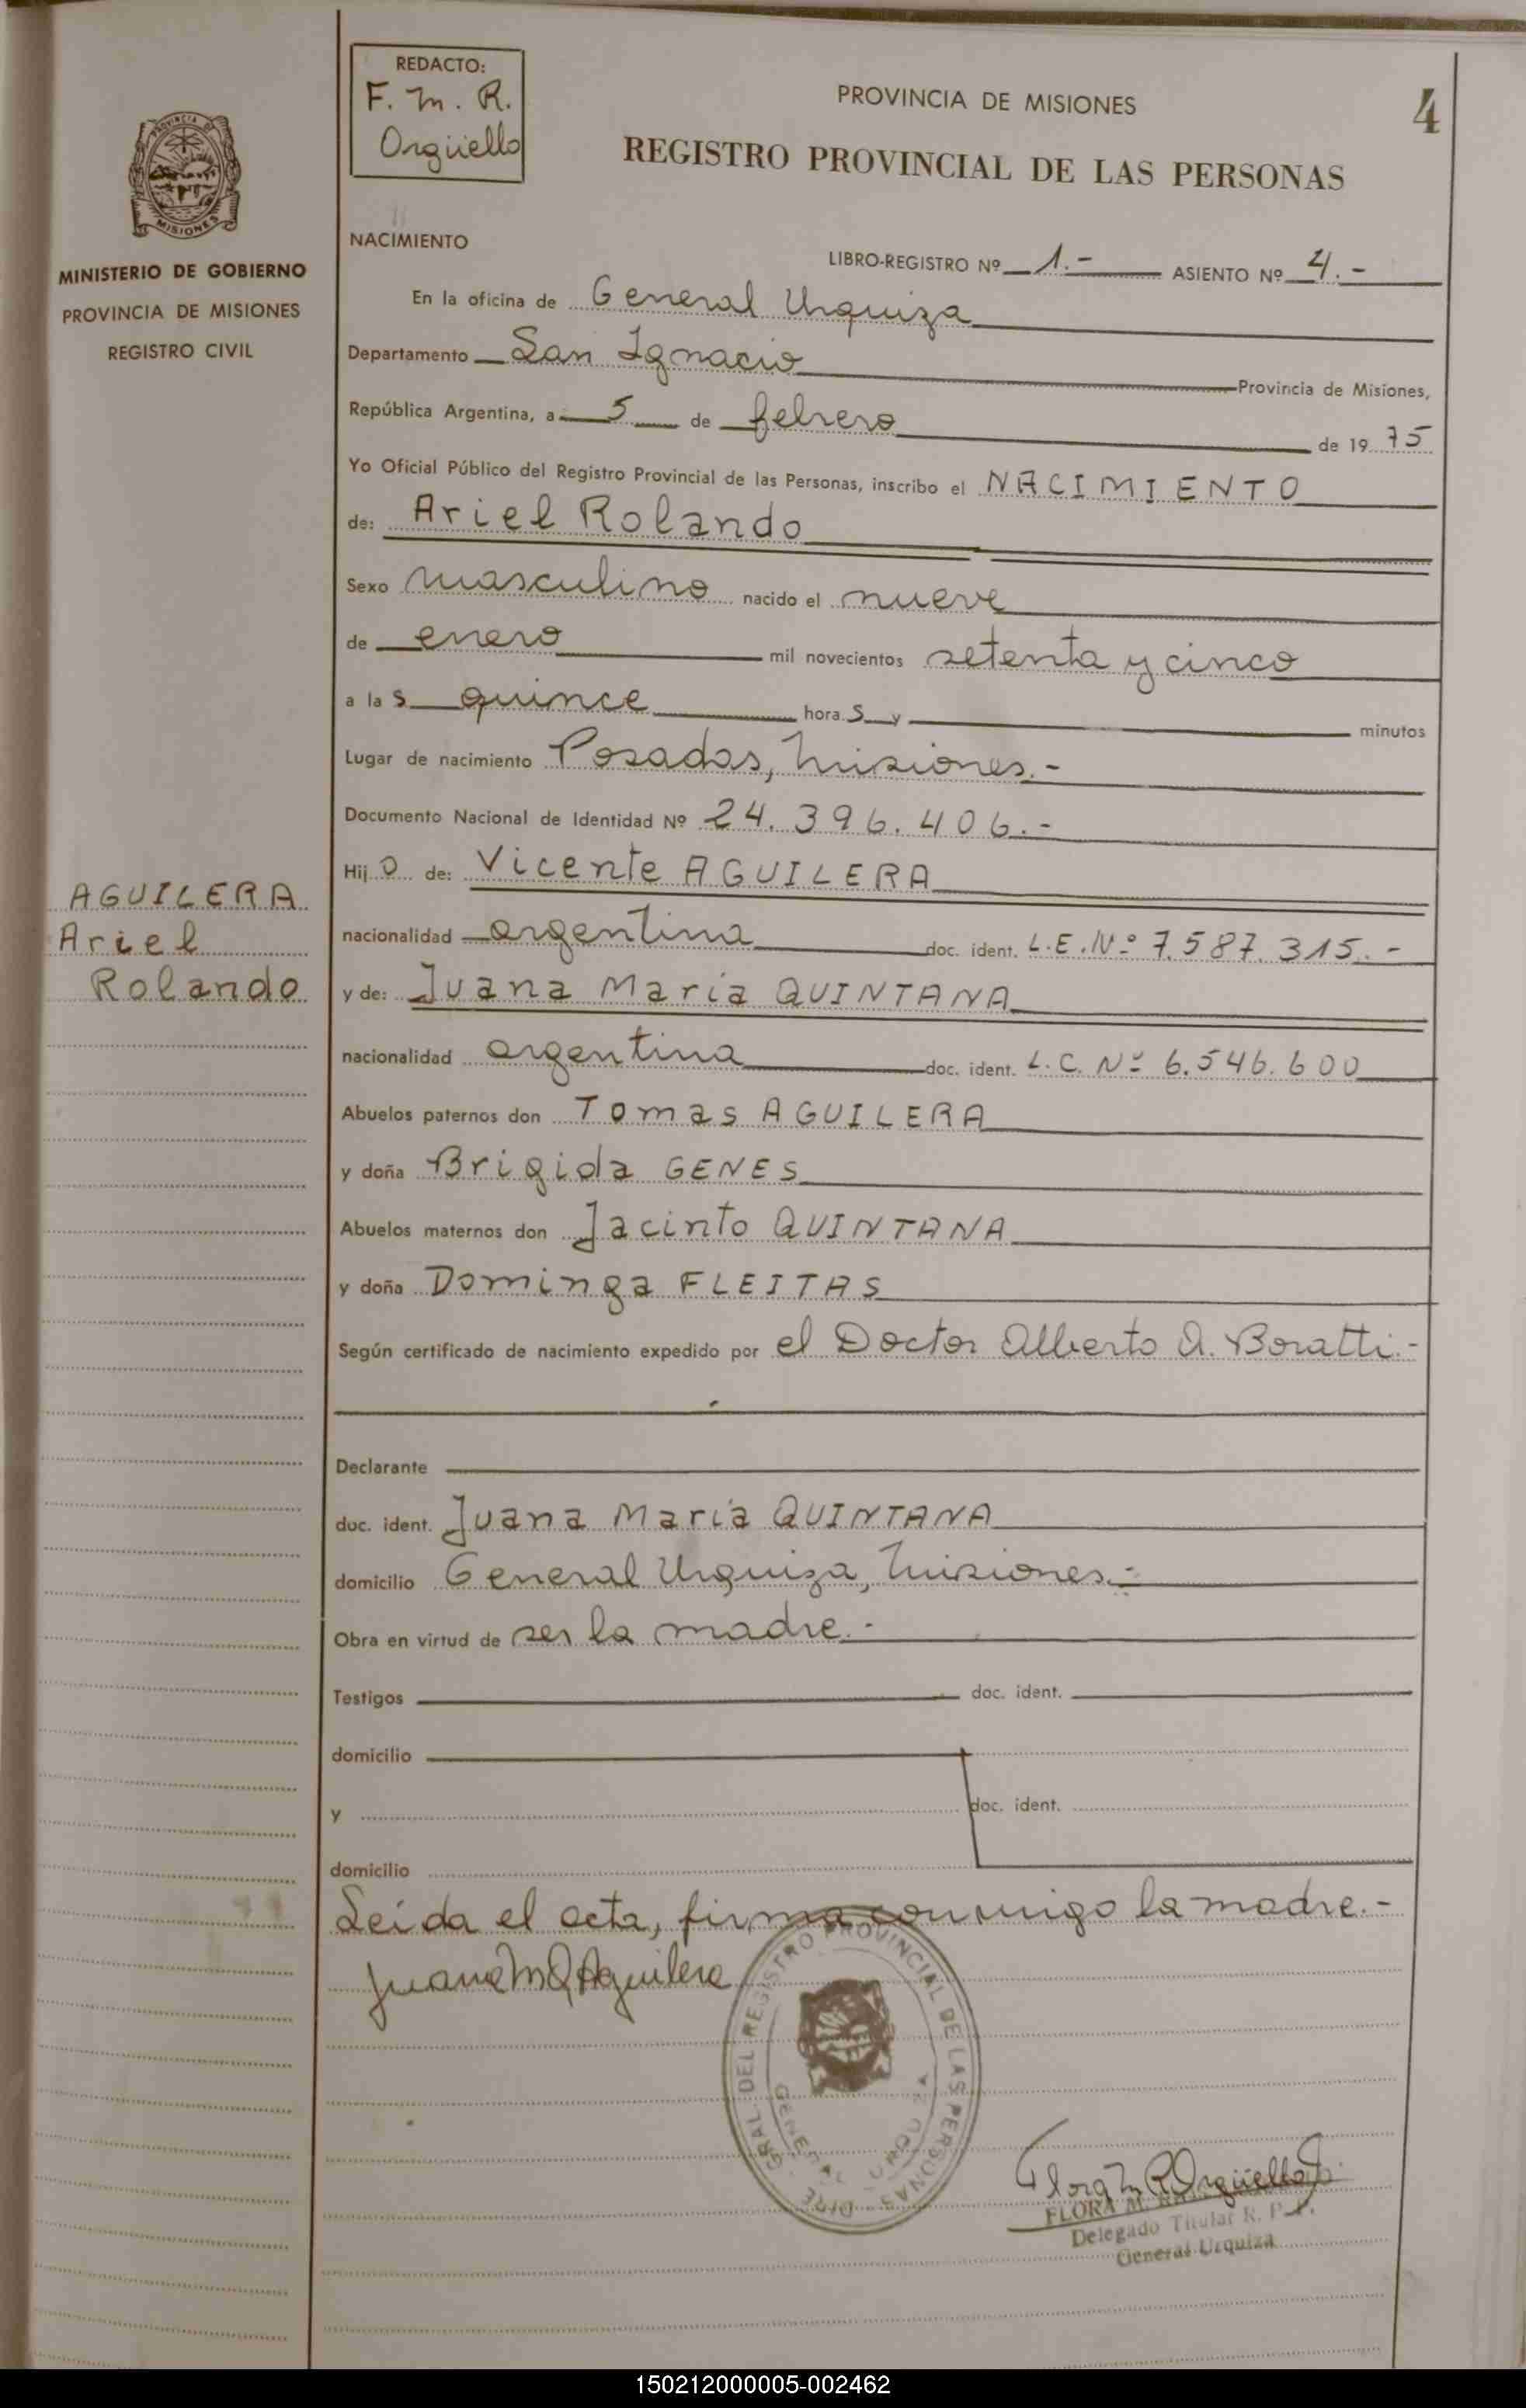 REDACTO:
F. M. R.
Orgüello
PROVINCIA DE MISIONES
4
REGISTRO PROVINCIAL DE LAS PERSONAS
MISIONES
MINISTERIO DE GOBIERNO
PROVINCIA DE MISIONES
REGISTRO CIVIL
NACIMIENTO
LIBRO-REGISTRO Nº 1.- ASIENTO Nº 4.-
En la oficina de General Urquiza
Departamento San Ignacio Provincia de Misiones,
República Argentina, a 5 de febrero de 1975
Yo Oficial Público del Registro Provincial de las Personas, inscribo el NACIMIENTO
de: Ariel Rolando
Sexo masculino nacido el nueve
de enero mil novecientos setenta y cinco
a las quince horas y minutos
Lugar de nacimiento Posadas, Misiones.-
Documento Nacional de Identidad Nº 24.396.406.-
Hijo de: Vicente AGUILERA
AGUILERA
Ariel
Rolando
nacionalidad argentina doc. ident. L.E.Nº 7.587.315.-
y de: Juana María QUINTANA
nacionalidad argentina doc. ident. L.C. Nº 6.546.600
Abuelos paternos don Tomas AGUILERA
y doña Brigida GENES
Abuelos maternos don Jacinto QUINTANA
y doña Dominga FLEITAS
Según certificado de nacimiento expedido por el Doctor Alberto A. Boratti.-
Declarante
doc. ident. Juana María QUINTANA
domicilio General Urquiza, Misiones.-
Obra en virtud de ser la madre.-
Testigos doc. ident.
domicilio
y doc. ident.
domicilio
Leída el acta, firma conmigo la madre.-
Juana M Q Aguilera
DIRE. GRAL. DEL REGISTRO PROVINCIAL DE LAS PERSONAS
GENERAL URQUIZA
Flora M R Orgüello
FLORA M.
Delegado Titular R. P. P.
General Urquiza
150212000005-002462